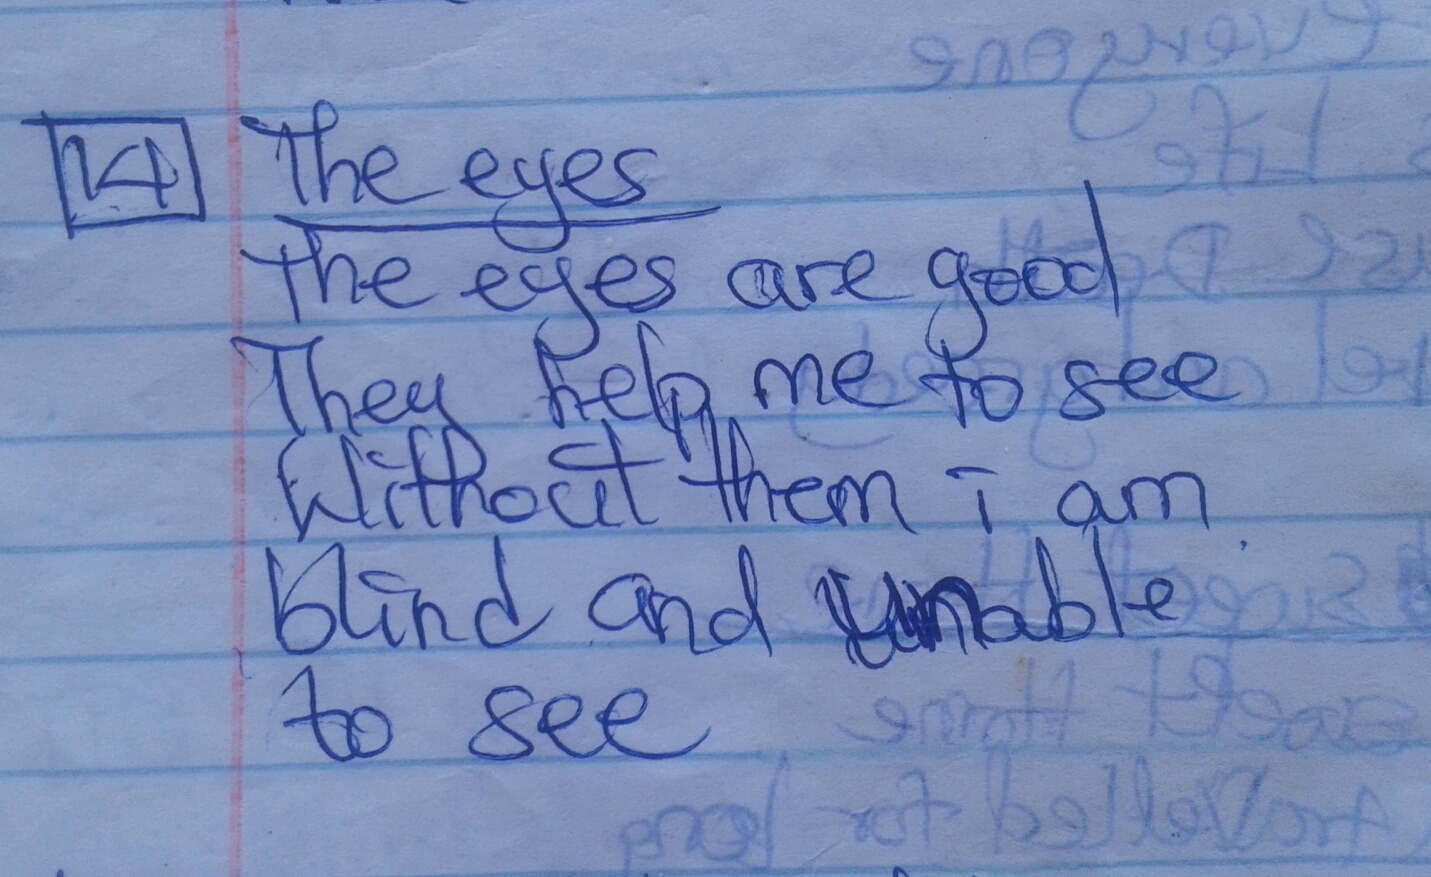 14 The eyes
the eyes are good
They help me to see
Without them i am
blind and unable
to see